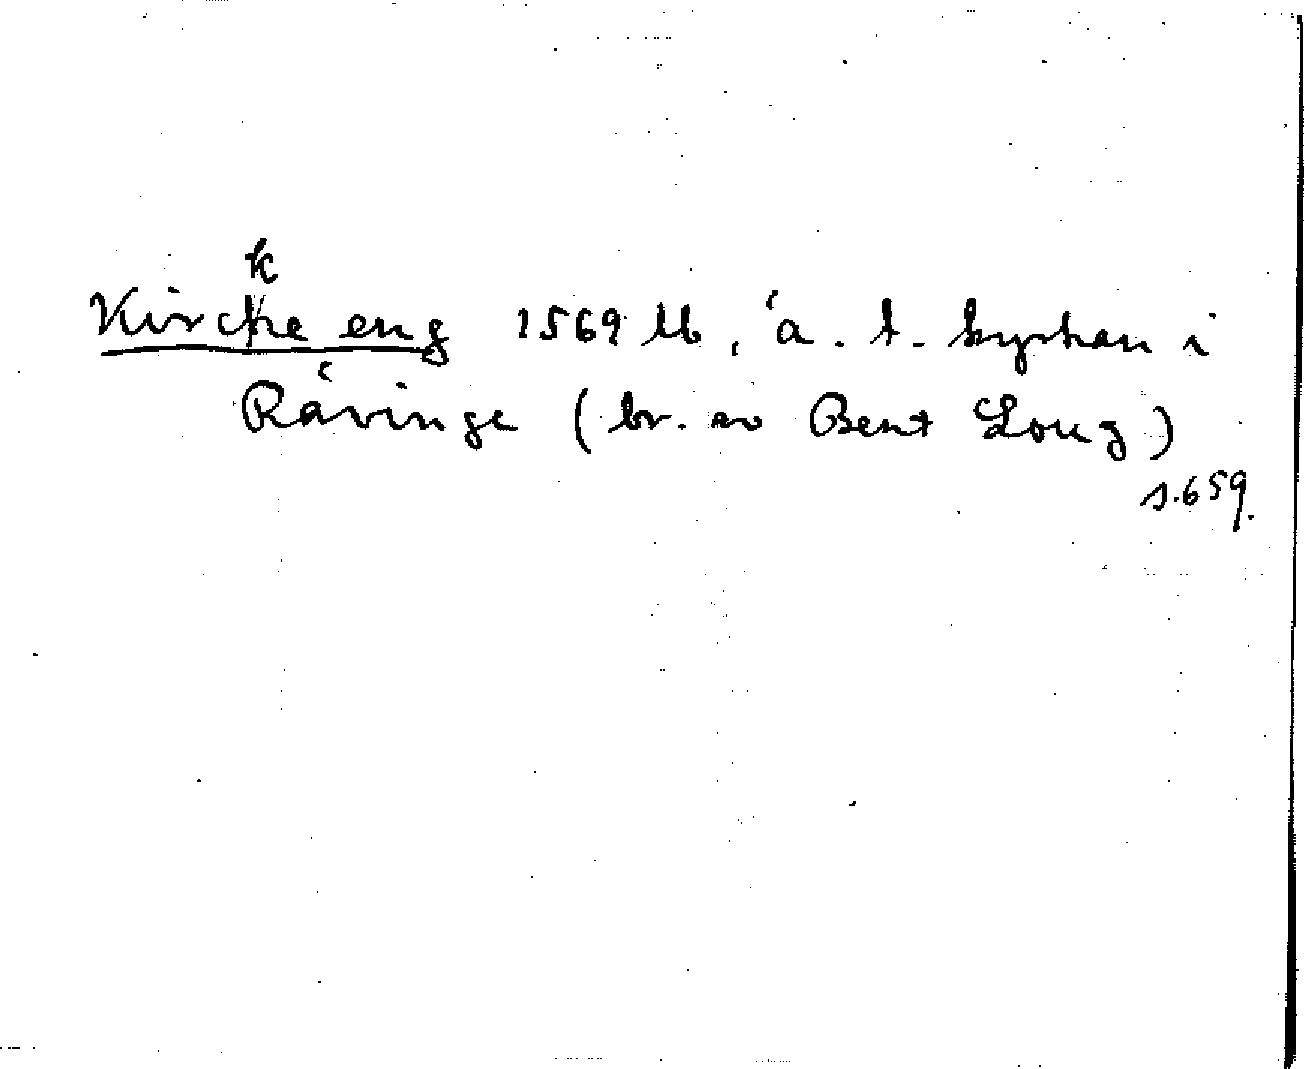 k
Kircke eng 1569 Lb, å. t. kyrkan i
Råvinge (br. av Bent Long)
s. 659.